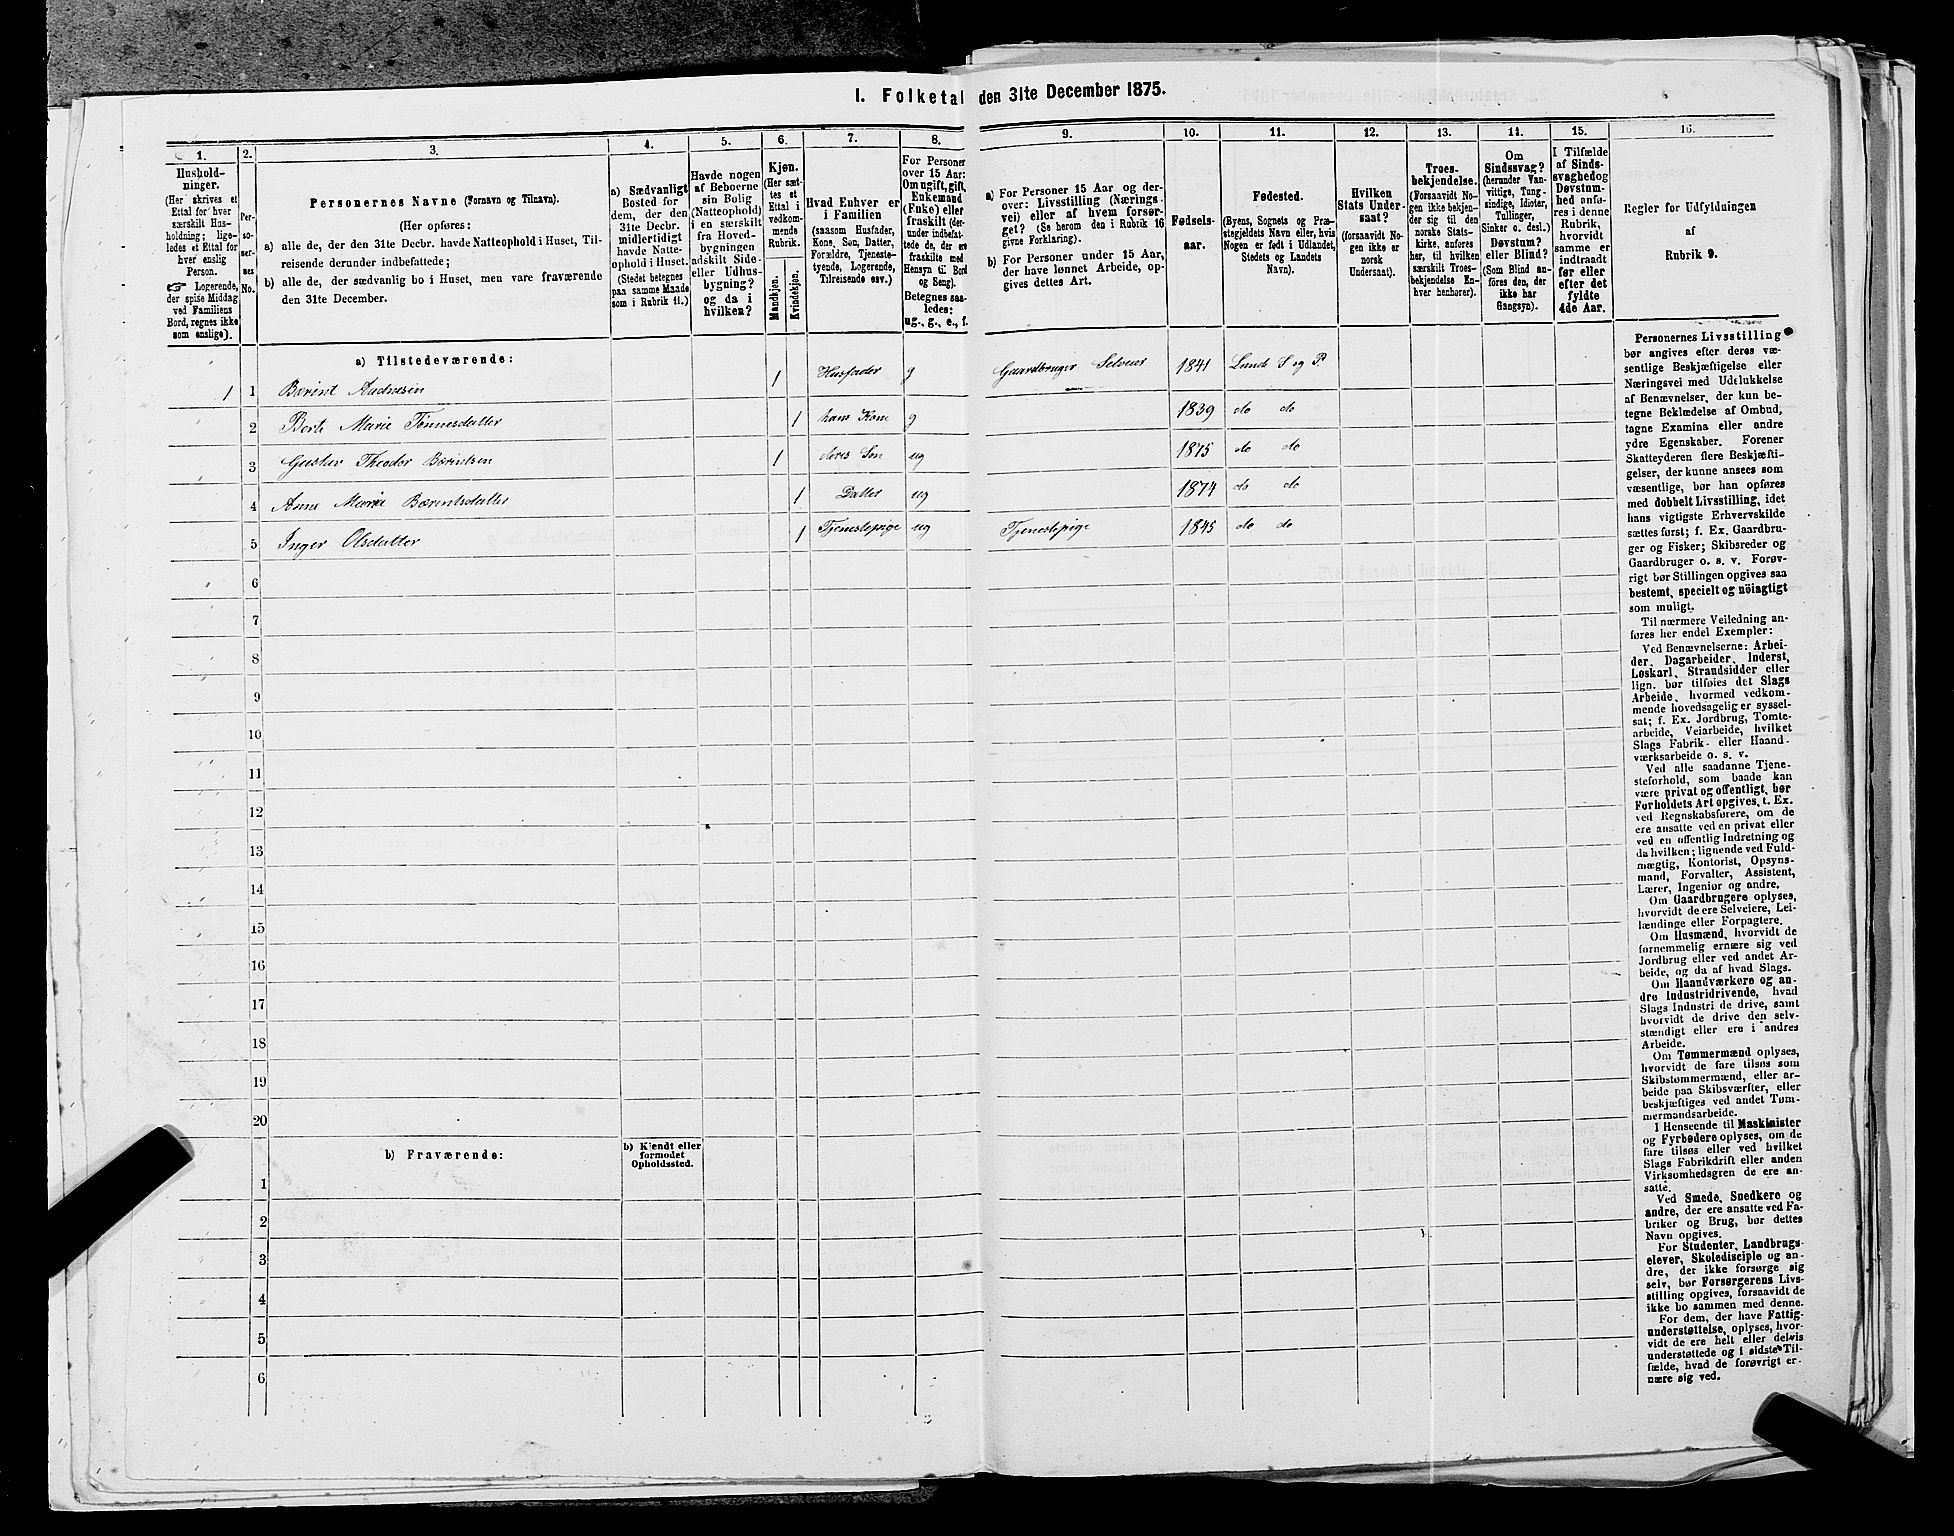 I. Folketal den 31te December 1875.
1.
Hushold-
ninger.
(Her skrives et
Ettal for hver
særskilt Hus-
holdning; lige-
ledes et Ettal for
hver enslig
Person.
☞ Logerende,
der spise Middag
ved Familiens
Bord, regnes ikke
som enslige).
2.
Per-
so-
ner-
ses
No.
3.
Personernes Navne (Fornavn og Tilnavn).
(Her opføres:
a) alle de, der den 31te Decbr. havde Natteophold i Huset, Til-
reisende derunder indbefattede;
b) alle de, der sædvanlig bo i Huset, men vare fraværende
den 31te December.
4.
a) Sædvanligt
Bosted for
dem, der den
31te Decbr.
midlertidigt
havde Natte-
ophold i Huset.
(Stedet betegnes
paa samme Maade
som i Rubrik 11.)
5.
Havde nogen
af Beboerne
sin Bolig
(Natteophold)
i en særskilt
fra Hoved-
bygningen
adskilt Side-
eller Udhus-
bygning?
og da i
hvilken?
6.
Kjøn.
(Her sæt-
tes et
Ettal i
vedkom-
mende
Rubrik.
Mandkjøn.
Kvindekjøn.
7.
Hvad Enhver er
i Familien
(saasom Husfader,
Kone, Søn, Datter,
Forældre, Tjeneste-
tyende, Logerende,
Tilreisende osv.)
8.
For Personer
over 15 Aar:
Om ugift, gift,
Enkemand
(Enke) eller
fraskilt (der-
under indbefat-
tede de, der ere
fraskilte med
Hensyn til Bord
og Seng).
Betegnes saa-
ledes:
ug., g., e., f.
9.
a) For Personer 15 Aar og der-
over: Livsstilling (Nærings-
vei) eller af hvem forsør-
get? (Se herom den i Rubrik 16
givne Forklaring).
b) For Personer under 15 Aar,
der have lønnet Arbeide, op-
gives dettes Art.
10.
Fødsels-
aar.
11.
Fødested.
(Byens, Sognets og Præ-
stegjeldets Navn eller, hvis
Nogen er født i Udlandet,
Stedets og Landets
Navn).
12.
Hvilken
Stats Under-
saat?
(forsaavidt No-
gen ikke er
norsk
Undersaat).
13.
Troes-
bekjendelse.
(Forsaavidt No-
gen ikke bekjen-
der sig til den
norske Stats-
kirke, anføres
her, til hvilken
særskilt Troes-
bekjendelse En-
hver henhører).
14.
Om
Sindssvag?
(herunder Van-
vittige, Tung-
sindige, Idioter,
Tullinger,
Sinker o. desl.)
Døvstum?
eller Blind?
(Som Blind an-
føres den, der
ikke har
Gangsyn).
15.
I Tilfælde
af Sinds-
svaghed og
Døvstum-
hed anfø-
res i denne
Rubrik,
hvorvidt
samme er
indtraadt
før eller
efter det
fyldte
4de Aar.
16.
Regler for Udfyldningen
af
Rubrik 9.
a) Tilstedeværende:
1 1 Bærint Andresen 1 Husfader g Gaardbruger Selveier 1841 Lunds S og P.
2 Berte Marie Tønnesdatter 1 hans Kone g 1839 do do
3 Gustav Theodor Bærintsen 1 deres Søn ug 1875 do do
4 Anne Marie Bærintsdatter 1 Datter ug 1874 do do
5 Inger Olsdatter 1 Tjenestepige ug Tjenestepige 1845 do do
6
7
8
9
10
11
12
13
14
15
16
17
18
19
20
b) Fraværende:
b) Kjendt eller
formodet
Opholdssted.
1
2
3
4
5
6
Personernes Livsstilling
bør angives efter deres væ-
sentlige Beskjæftigelse eller
Næringsvei med Udelukkelse
af Benævnelser, der kun be-
tegne Beklædelse af Ombud,
tagne Examina eller andre
ydre Egenskaber. Forener
Skatteyderen flere Beskjæfti-
gelser, der kunne ansees som
væsentlige, bør han opføres
med dobbelt Livsstilling, idet
hans vigtigste Erhvervskilde
sættes først; f. Ex. Gaardbru-
ger og Fisker; Skibsreder og
Gaardbruger o. s. v. Forøv-
rigt bør Stillingen opgives saa
bestemt, specielt og nöiagtigt
som muligt.
Til nærmere Veiledning an-
føres her endel Exempler:
Ved Benævnelserne: Arbei-
der, Dagarbeider, Inderst,
Løskarl, Strandsidder eller
lign. bør tilføies det Slags
Arbeide, hvormed vedkom-
mende hovedsagelig er syssel-
sat; f. Ex. Jordbrug, Tomte-
arbeide, Veiarbeide, hvilket
Slags Fabrik- eller Haand-
værksarbeide o. s. v.
Ved alle saadanne Tjene-
steforhold, som baade kan
være privat og offentligt, bør
Forholdets Art opgives, t. Ex.
ved Regnskabsførere, om de
ere ansatte ved en privat eller
ved en offentlig Indretning og
da hvilken; lignende ved Fuld-
mægtig, Kontorist, Opsyns-
mand, Forvalter, Assistent,
Lærer, Ingeniør og andre.
Om Gaardbrugere oplyses,
hvorvidt de ere Selveiere, Lei-
lændinge eller Forpagtere.
Om Husmænd, hvorvidt de
fornemmelig ernære sig ved
Jordbrug eller ved andet Ar-
beide, og da af hvad Slags.
Om Haandværkere og an-
dre Industridrivende, hvad
Slags Industri de drive, samt
hvorvidt de drive den selv-
stændigt eller ere i andres
Arbeide.
Om Tømmermænd oplyses,
hvorvidt de fare tilsøs som
Skibstømmermænd, eller ar-
beide paa Skibsværfter, eller
beskjæftiges ved andet Tøm-
mermandsarbeide.
I Henseende til Maskinister
og Fyrbødere oplyses, om de
fare tilsøs eller ved hvilket
Slags Fabrikdrift eller anden
Virksomhedsgren de ere an-
satte.
Ved Smede, Snedkere og
andre, der ere ansatte ved Fa-
briker og Brug, bør dettes
Navn opgives.
For Studenter, Landbrugs-
elever, Skoledisciple og an-
dre, der ikke forsørge sig
selv, bør Forsørgerens Livs-
stilling opgives, forsaavidt de
ikke bo sammen med denne.
For dem, der have Fattig-
understøttelse, oplyses, hvor-
vidt de ere helt eller delvis
understøttede og i sidste Til-
fælde, hvad de forøvrigt er-
nære sig ved.